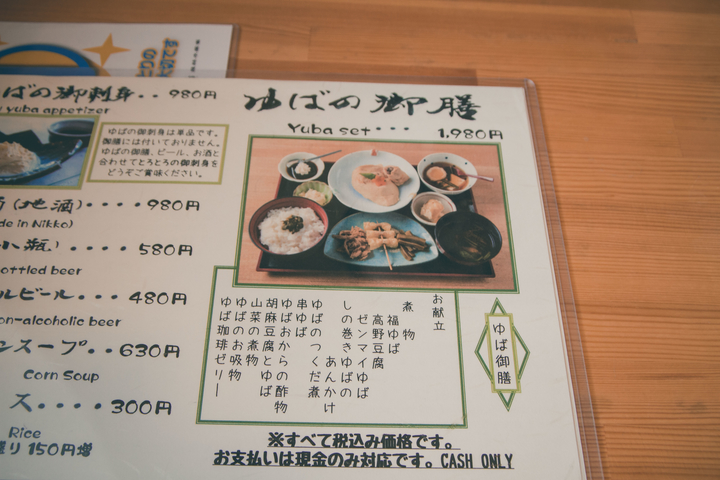 ばの御刺身・・980円
yuba appetizer
ゆばの御刺身は単品です。
御膳には付いておりません。
ゆばの御膳、ビール、お酒と
合わせてとろとろの御刺身を
どうぞご賞味ください。
(地酒)・・・・980円
de in Nikko)
小瓶)・・・・580円
ottled beer
ルビール・・・480円
on-alcoholic beer
ンスープ・・630円
Corn Soup
ス・・・・300円
Rice
盛り150円増
ゆばの御膳
Yuba set・・・ 1,980円
お献立
煮
福ゆば
高野豆腐
ゼンマイ
胡麻豆腐
ゆば珈琲ゼリー
ゆば御膳
※すべて税込み価格です。
お支払いは現金のみ対応です。CASH ONLY